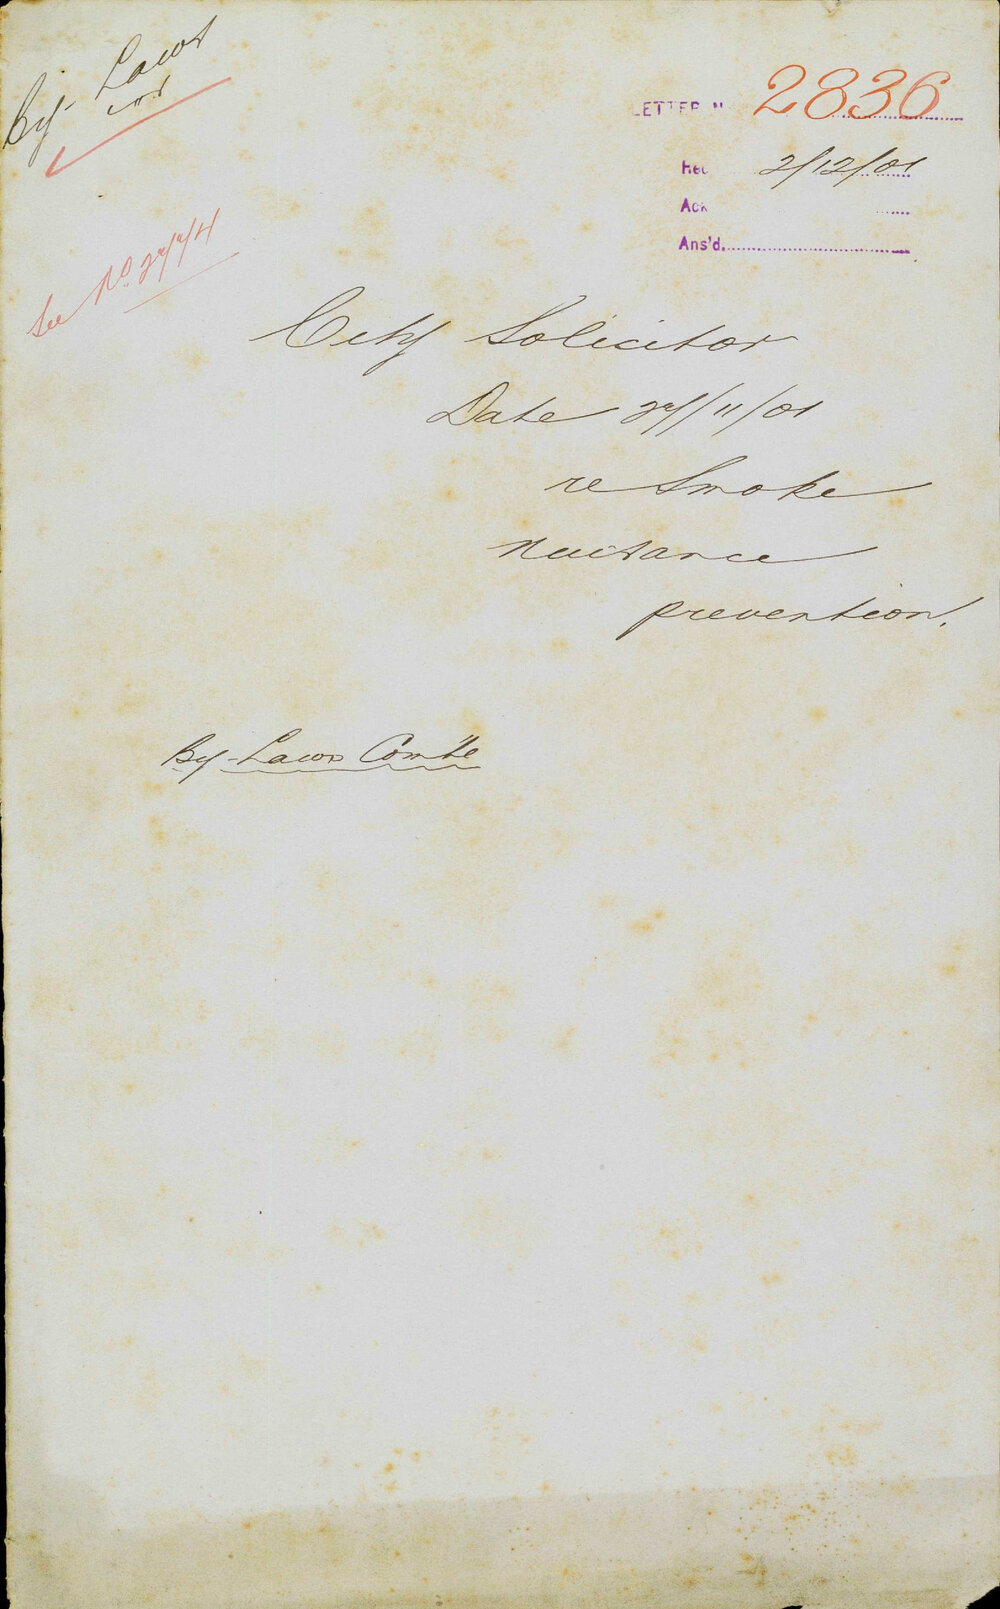 By-Laws
LETTER N 2836
Rec 2/12/01
Ack
Ans'd
See No. 2774
City Solicitor
Date 27/11/01
re Smoke
Nuisance
prevention.
By-Laws Com'tee